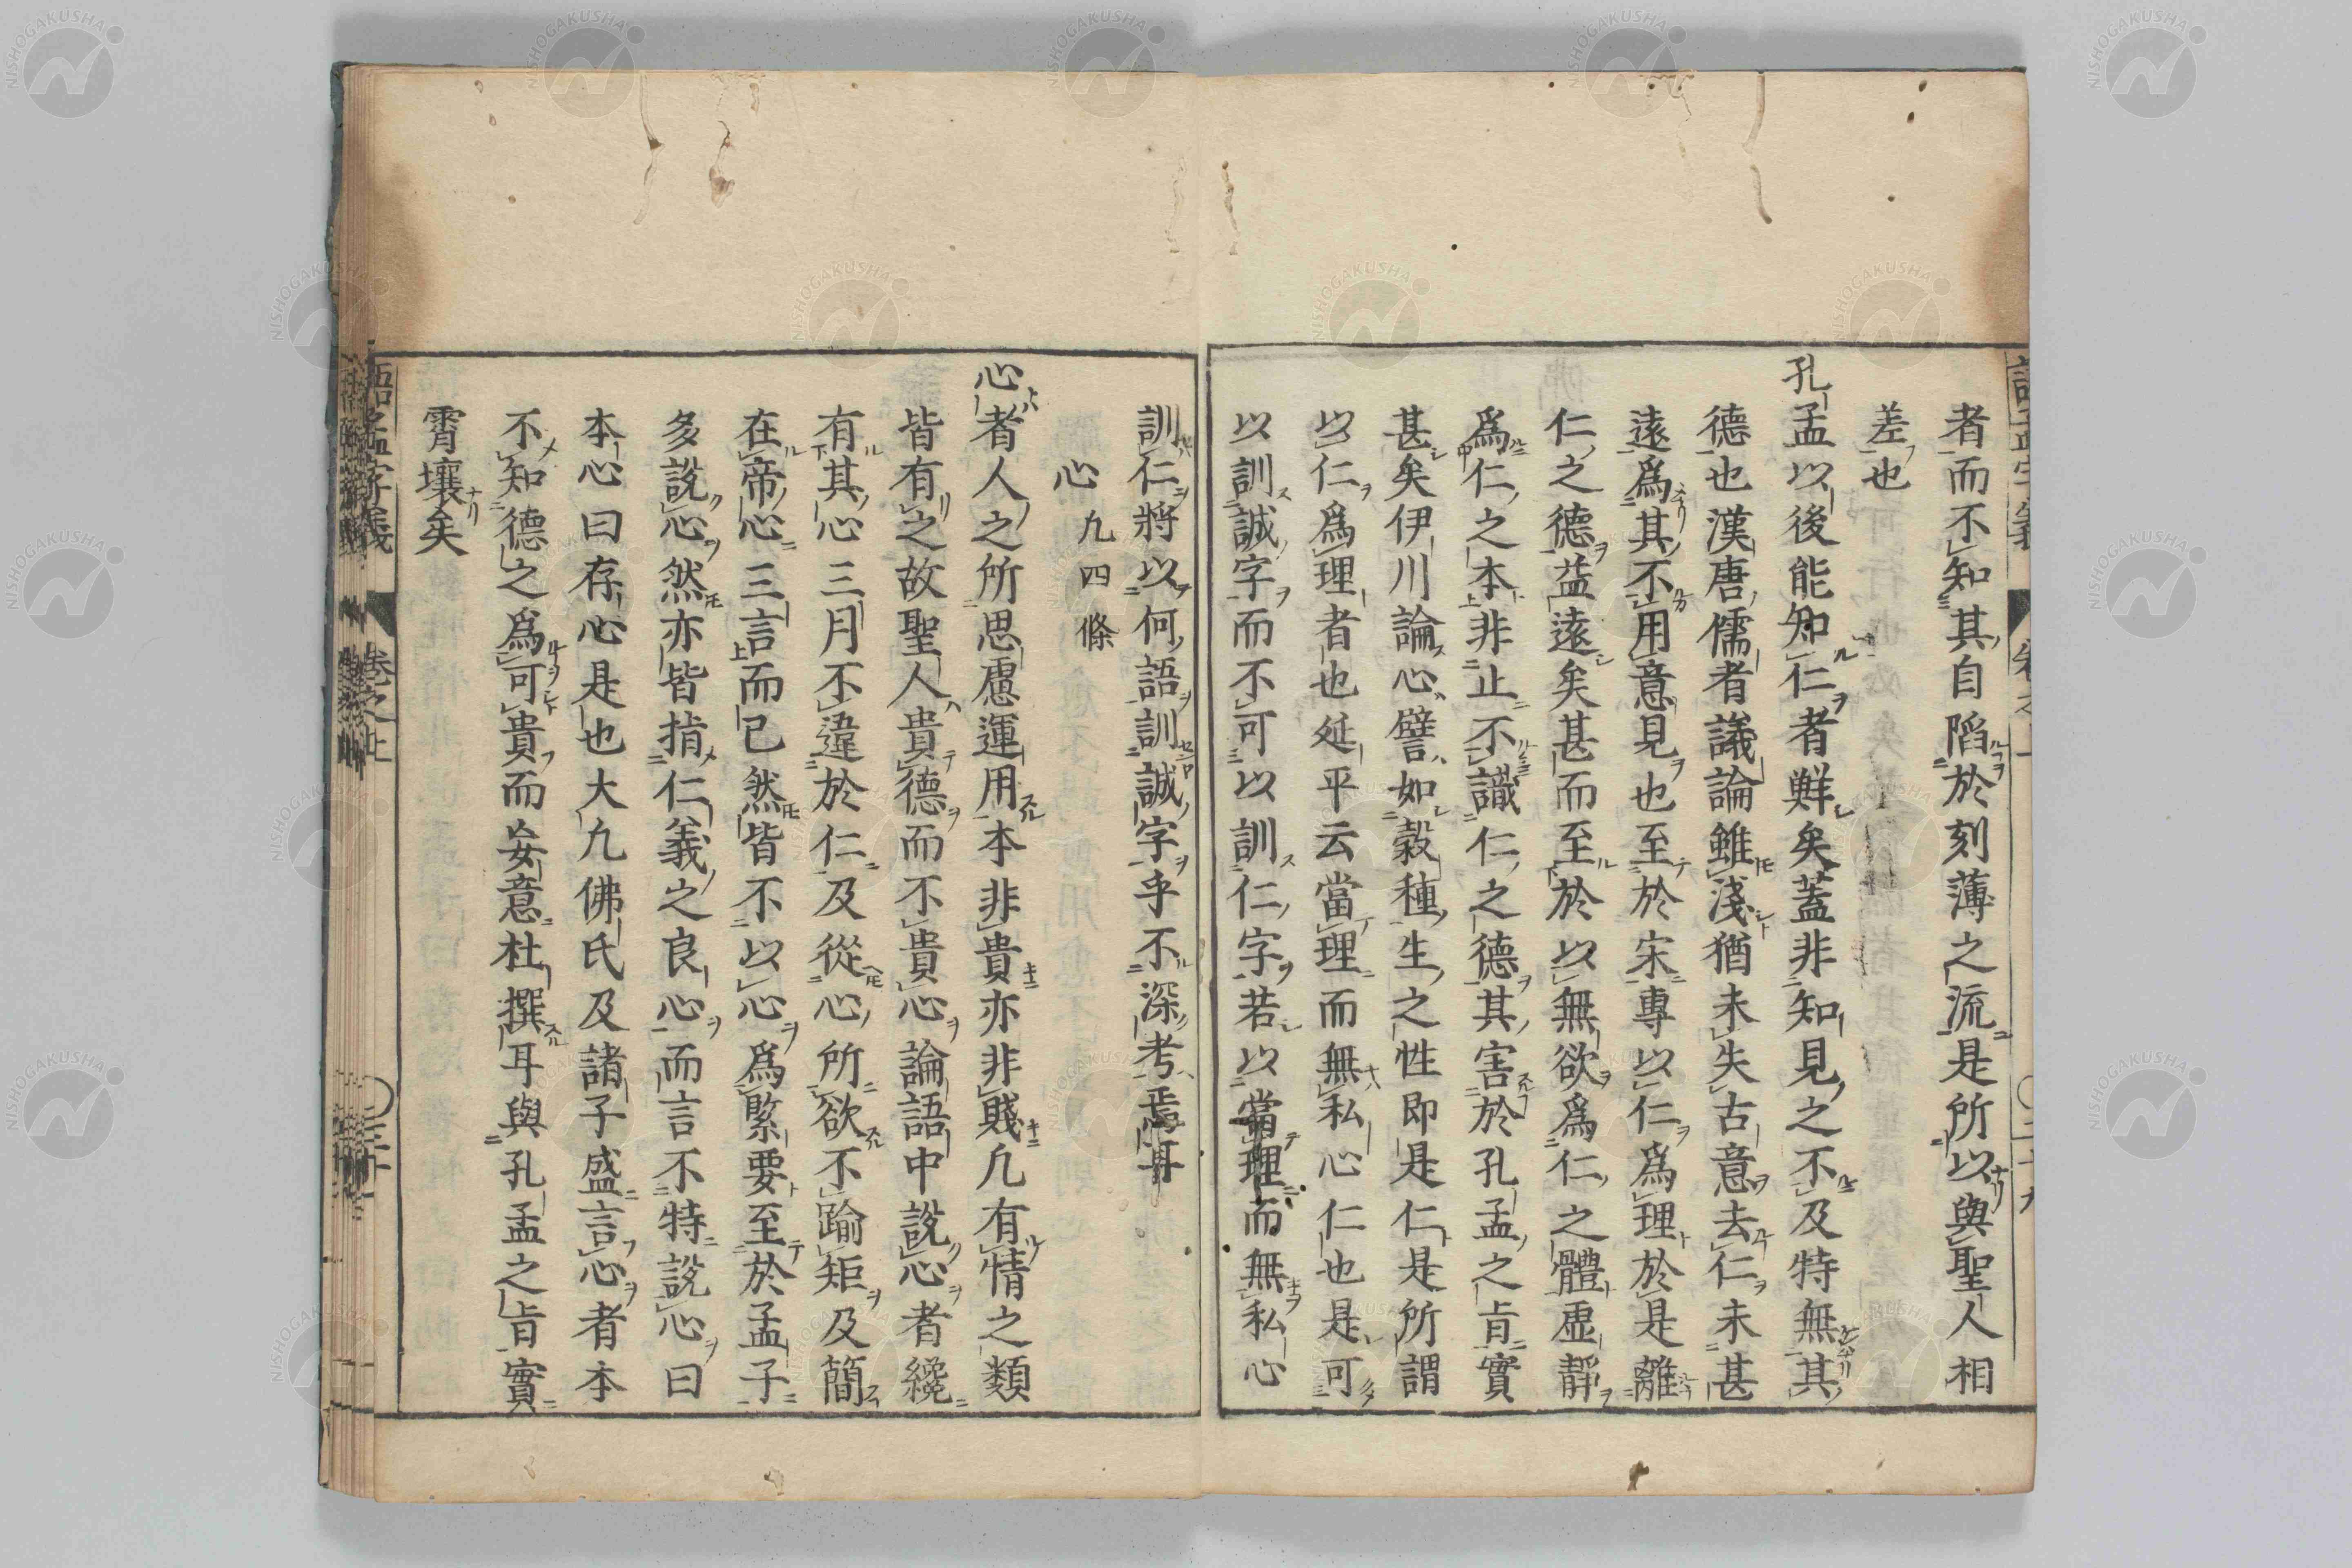 者而不知其自陷於刻薄之流是所以與聖人相
差也
孔孟以後能知仁者鮮矣蓋非知見之不及特無其
德也漢唐儒者議論雖淺猶未失古意去仁未甚
遠爲其不用意見也至於宋專以仁爲理於是離
仁之德益遠矣甚而至於以無欲爲仁之體虛靜
爲仁之本非止不識仁之德其害於孔孟之旨實
甚矣伊川論心譬如穀種生之性即是仁是所謂
以仁爲理者也延平云當理而無私心仁也是可
以訓誠字而不可以訓仁字若以當理而無私心
訓仁將以何語訓誠字乎不深考焉耳
心 凡四條
心者人之所思慮運用本非貴亦非賤凡有情之類
皆有之故聖人貴德而不貴心論語中說心者纔
有其心三月不違於仁及從心所欲不踰矩及簡
在帝心三言而已然皆不以心爲緊要至於孟子
多說心然亦皆指仁義之良心而言不特說心曰
本心曰存心是也大凡佛氏及諸子盛言心者本
不知德之爲可貴而妄意杜撰耳與孔孟之旨實
霄壤矣
語孟字義 卷之上 〇三十
NISHOGAKUSHA